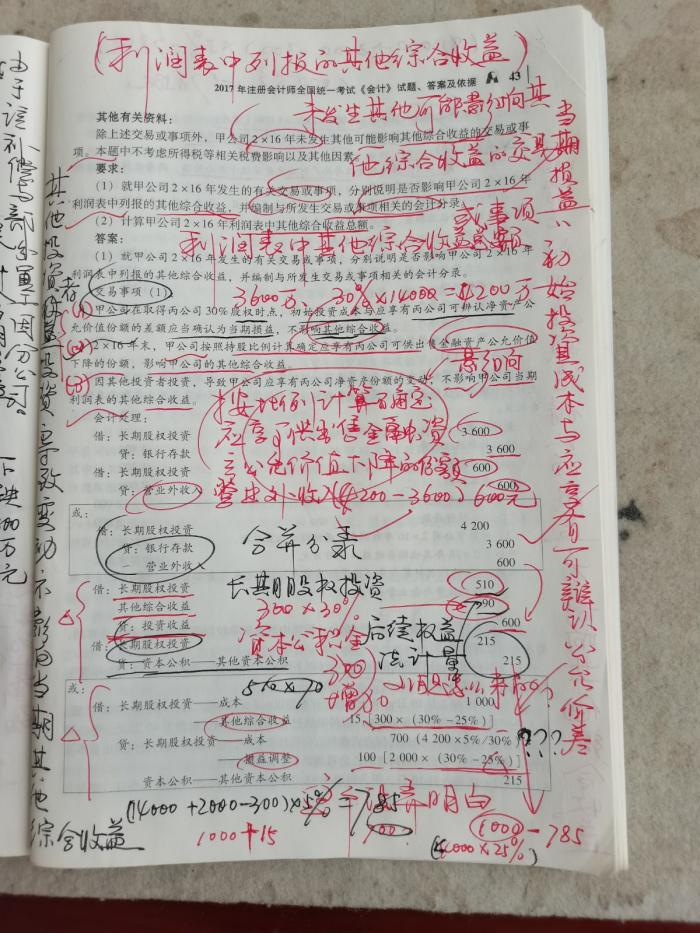 (利润表中列报的其他综合收益)
2017 年注册会计师全国统一考试《会计》试题、答案及依据 43
未发生其他可能影响其
他综合收益的交易
或事项
其他有关资料：
除上述交易或事项外，甲公司 2×16 年未发生其他可能影响其他综合收益的交易或事
项。本题中不考虑所得税等相关税费影响以及其他因素。
要求：
（1）就甲公司 2×16 年发生的有关交易或事项，分别说明是否影响甲公司 2×16 年
利润表中列报的其他综合收益，并编制与所发生交易或事项相关的会计分录。
（2）计算甲公司 2×16 年利润表中列报的其他综合收益总额。
利润表中其他综合收益总额
答案：
（1）就甲公司 2×16 年发生的有关交易或事项，分别说明是否影响甲公司 2×16 年
利润表中列报的其他综合收益，并编制与所发生交易或事项相关的会计分录。
交易事项（1）
3600万、30%×14000=4200万
(1) 甲公司在取得丙公司 30% 股权时点，初始投资成本与应享有丙公司可辨认净资产公
允价值份额的差额应当确认为当期损益，不影响其他综合收益。
(2) 2×16 年末，甲公司按照持股比例计算确定应享有丙公司可供出售金融资产公允价值
下降的份额，影响甲公司的其他综合收益。
影响
(3) 因其他投资者投资，导致甲公司应享有丙公司净资产份额的变动，不影响甲公司当期
利润表的其他综合收益。
按比例计算百确定
应享可供出售金融资
产公允价值下降的份额
会计处理：
借：长期股权投资 3 600
贷：银行存款 3 600
借：长期股权投资 600
贷：营业外收入 600
营业外收入(4200-3600) 600元
或：
借：长期股权投资 4 200
贷：银行存款 3 600
营业外收入 600
合并分录
借：长期股权投资 510
长其朋股权投资
其他综合收益 90
300×30%
贷：投资收益 600
借：长期股权投资 215
贷：资本公积——其他资本公积 215
资本公积金
300
增加
后续权益
法计量
或：
借：长期股权投资——成本 1 000
——其他综合收益 15 [300×（30%－25%）]
贷：长期股权投资——成本 700（4 200×5%/30%）
——损益调整 100 [2 000×（30%－25%）]
资本公积——其他资本公积 215
???
(14000+2000-300)×5%=785
弄明白
1000+15
700
1000-785
当期损益、初始投资成本与应享有可辨认公允价差
其他投资者投资导致变动不影响当期其他
综合收益